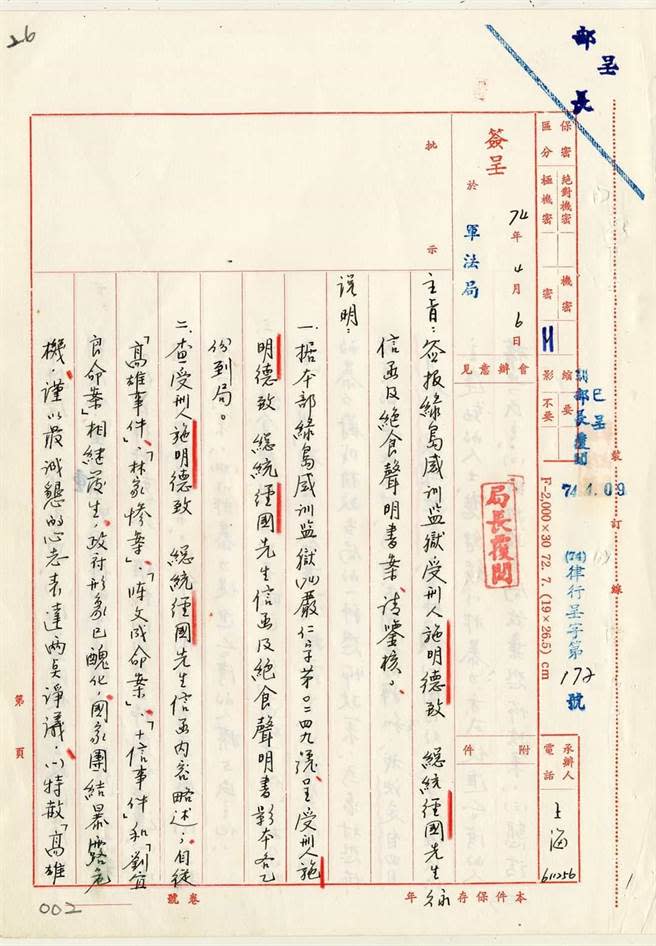 26
部長
呈
保密區分
絕對機密
極機密
機密
密
縮影
要
不要
已呈
副部長覆閱
74.4.09
裝訂線
F-2,000×30 72. 7. (19×26.5) cm
(74)律行呈字第172號
承辦人
電話
上海
611256
簽呈
於軍法局
74年4月6日
會辦意見
附件
批示
局長覆閱
主旨：簽報綠島感訓監獄受刑人施明德致 總統經國先生
信函及絕食聲明書案，請鑒核。
說明：
一、據本部綠島感訓監獄(74)嚴仁字第0二四九號呈受刑人施
明德致 總統經國先生信函及絕食聲明書影本各乙
份到局。
二、查受刑人施明德致 總統經國先生信函內容略述：自從
「高雄事件」、「林家慘案」、「陳文成命案」、「十信事件」和「劉宜
良命案」相繼發生，政府形象已醜化，國家團結暴露危
機，謹以最誠懇的心志表達兩員諍議，以特赦「高雄
第 頁
本件保存 年
卷號
002